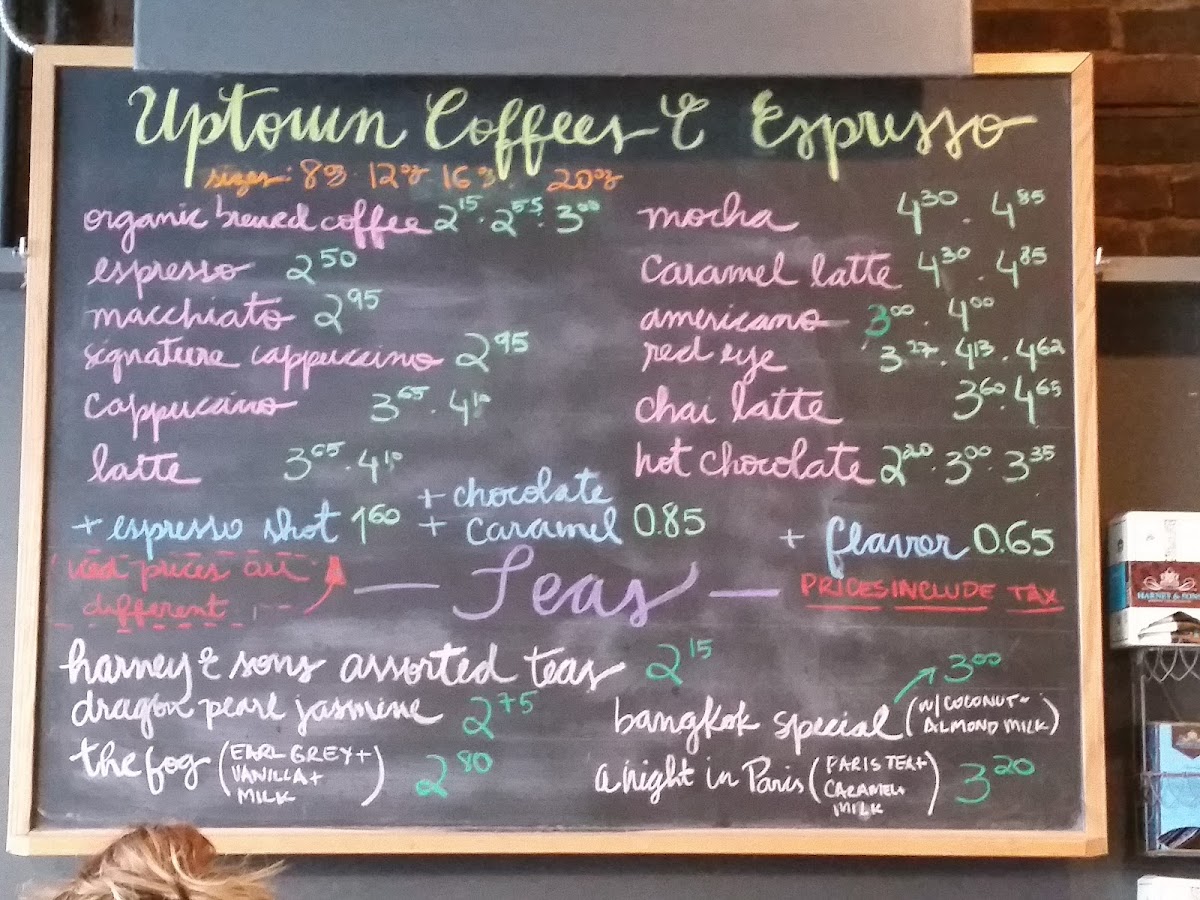 Uptown Coffees & Espresso
sizes: 8oz · 12oz · 16oz · 20oz
organic brewed coffee 2.15 · 2.55 · 3.00
espresso 2.50
macchiato 2.95
signature cappuccino 2.95
cappuccino 3.65 · 4.10
latte 3.65 · 4.10
mocha 4.30 · 4.85
caramel latte 4.30 · 4.85
americano 3.00 · 4.00
red eye 3.27 · 4.13 · 4.62
chai latte 3.60 · 4.65
hot chocolate 2.20 · 3.00 · 3.35
+ espresso shot 1.60
+ chocolate
+ caramel 0.85
+ flavor 0.65
iced prices are
different
— Teas —
PRICES INCLUDE TAX
harney & sons assorted teas 2.15
dragon pearl jasmine 2.75
the fog (EARL GREY +
VANILLA +
MILK) 2.80
bangkok special 3.00
(W/ COCONUT ~
ALMOND MILK)
a night in Paris (PARIS TEA +
CARAMEL +
MILK) 3.20
HARNEY & SONS